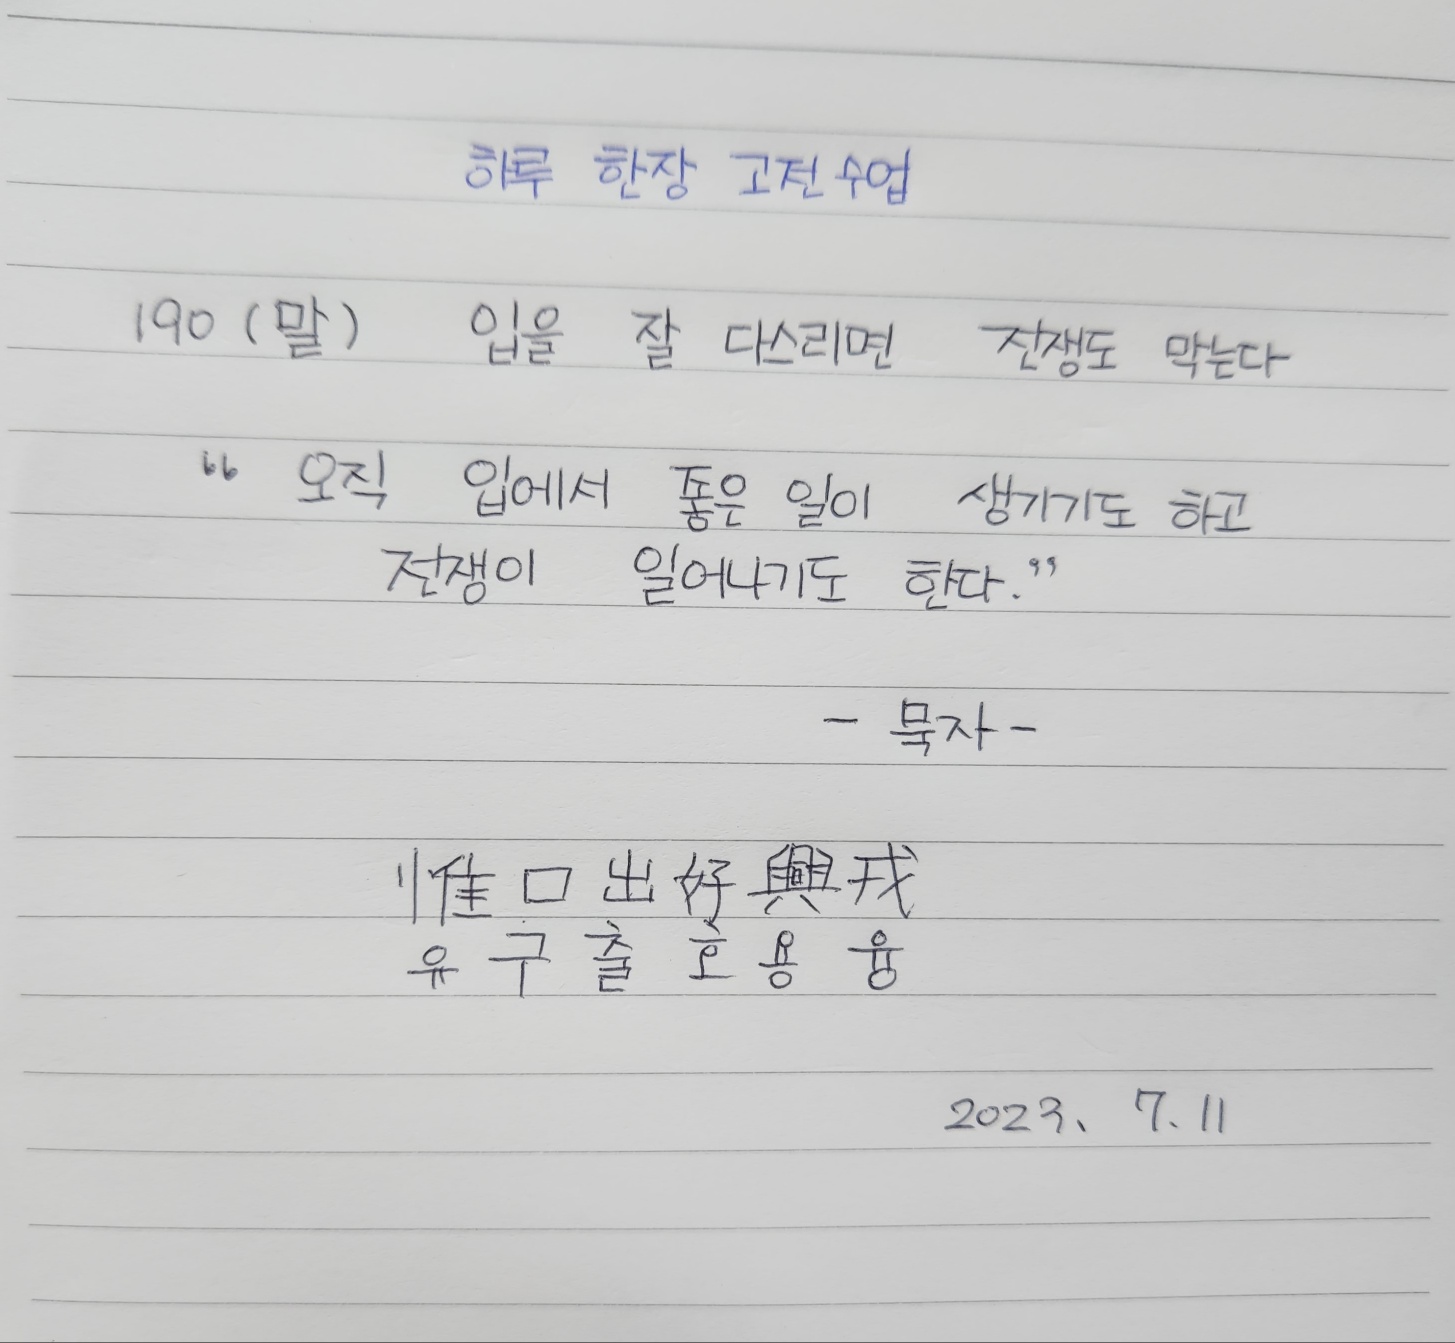 하루 한장 고전수업
190 (말) 입을 잘 다스리면 전쟁도 막는다
“ 오직 입에서 좋은 일이 생기기도 하고
전쟁이 일어나기도 한다.”
- 묵자 -
惟口出好興戎
유구출호용융
2023. 7. 11